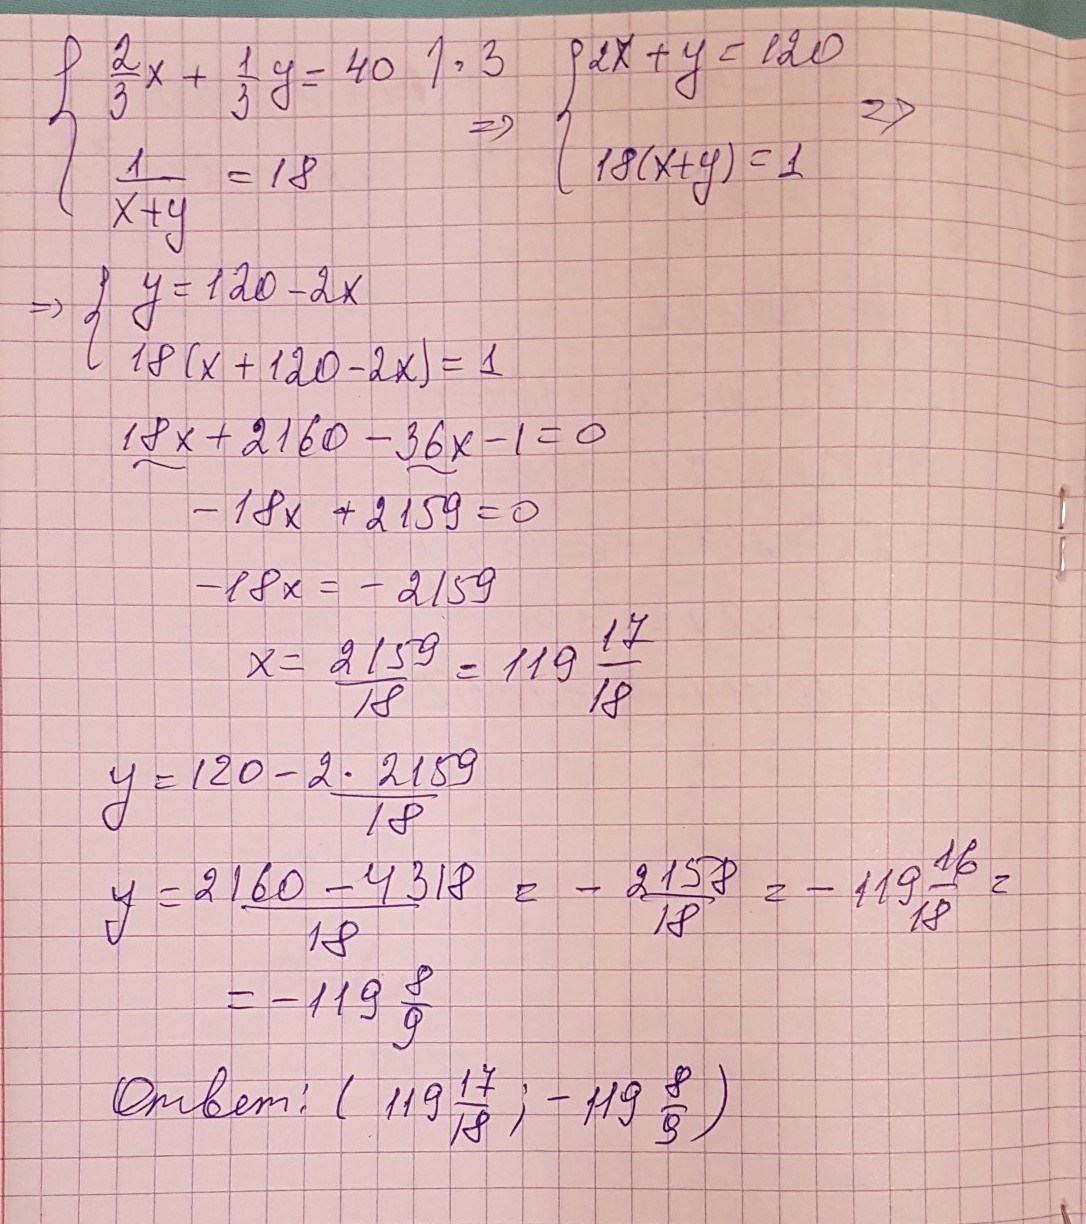 { 2/3 x + 1/3 y = 40 | · 3 => { 2x + y = 120 =>
1/(x+y) = 18 18(x+y) = 1
=> { y = 120 - 2x
18(x + 120 - 2x) = 1
18x + 2160 - 36x - 1 = 0
- 18x + 2159 = 0
- 18x = - 2159
x = 2159/18 = 119 17/18
y = 120 - 2 · 2159/18
y = 2160 - 4318/18 = - 2158/18 = - 119 16/18 =
= - 119 8/9
Ответ: ( 119 17/18 ; - 119 8/9 )